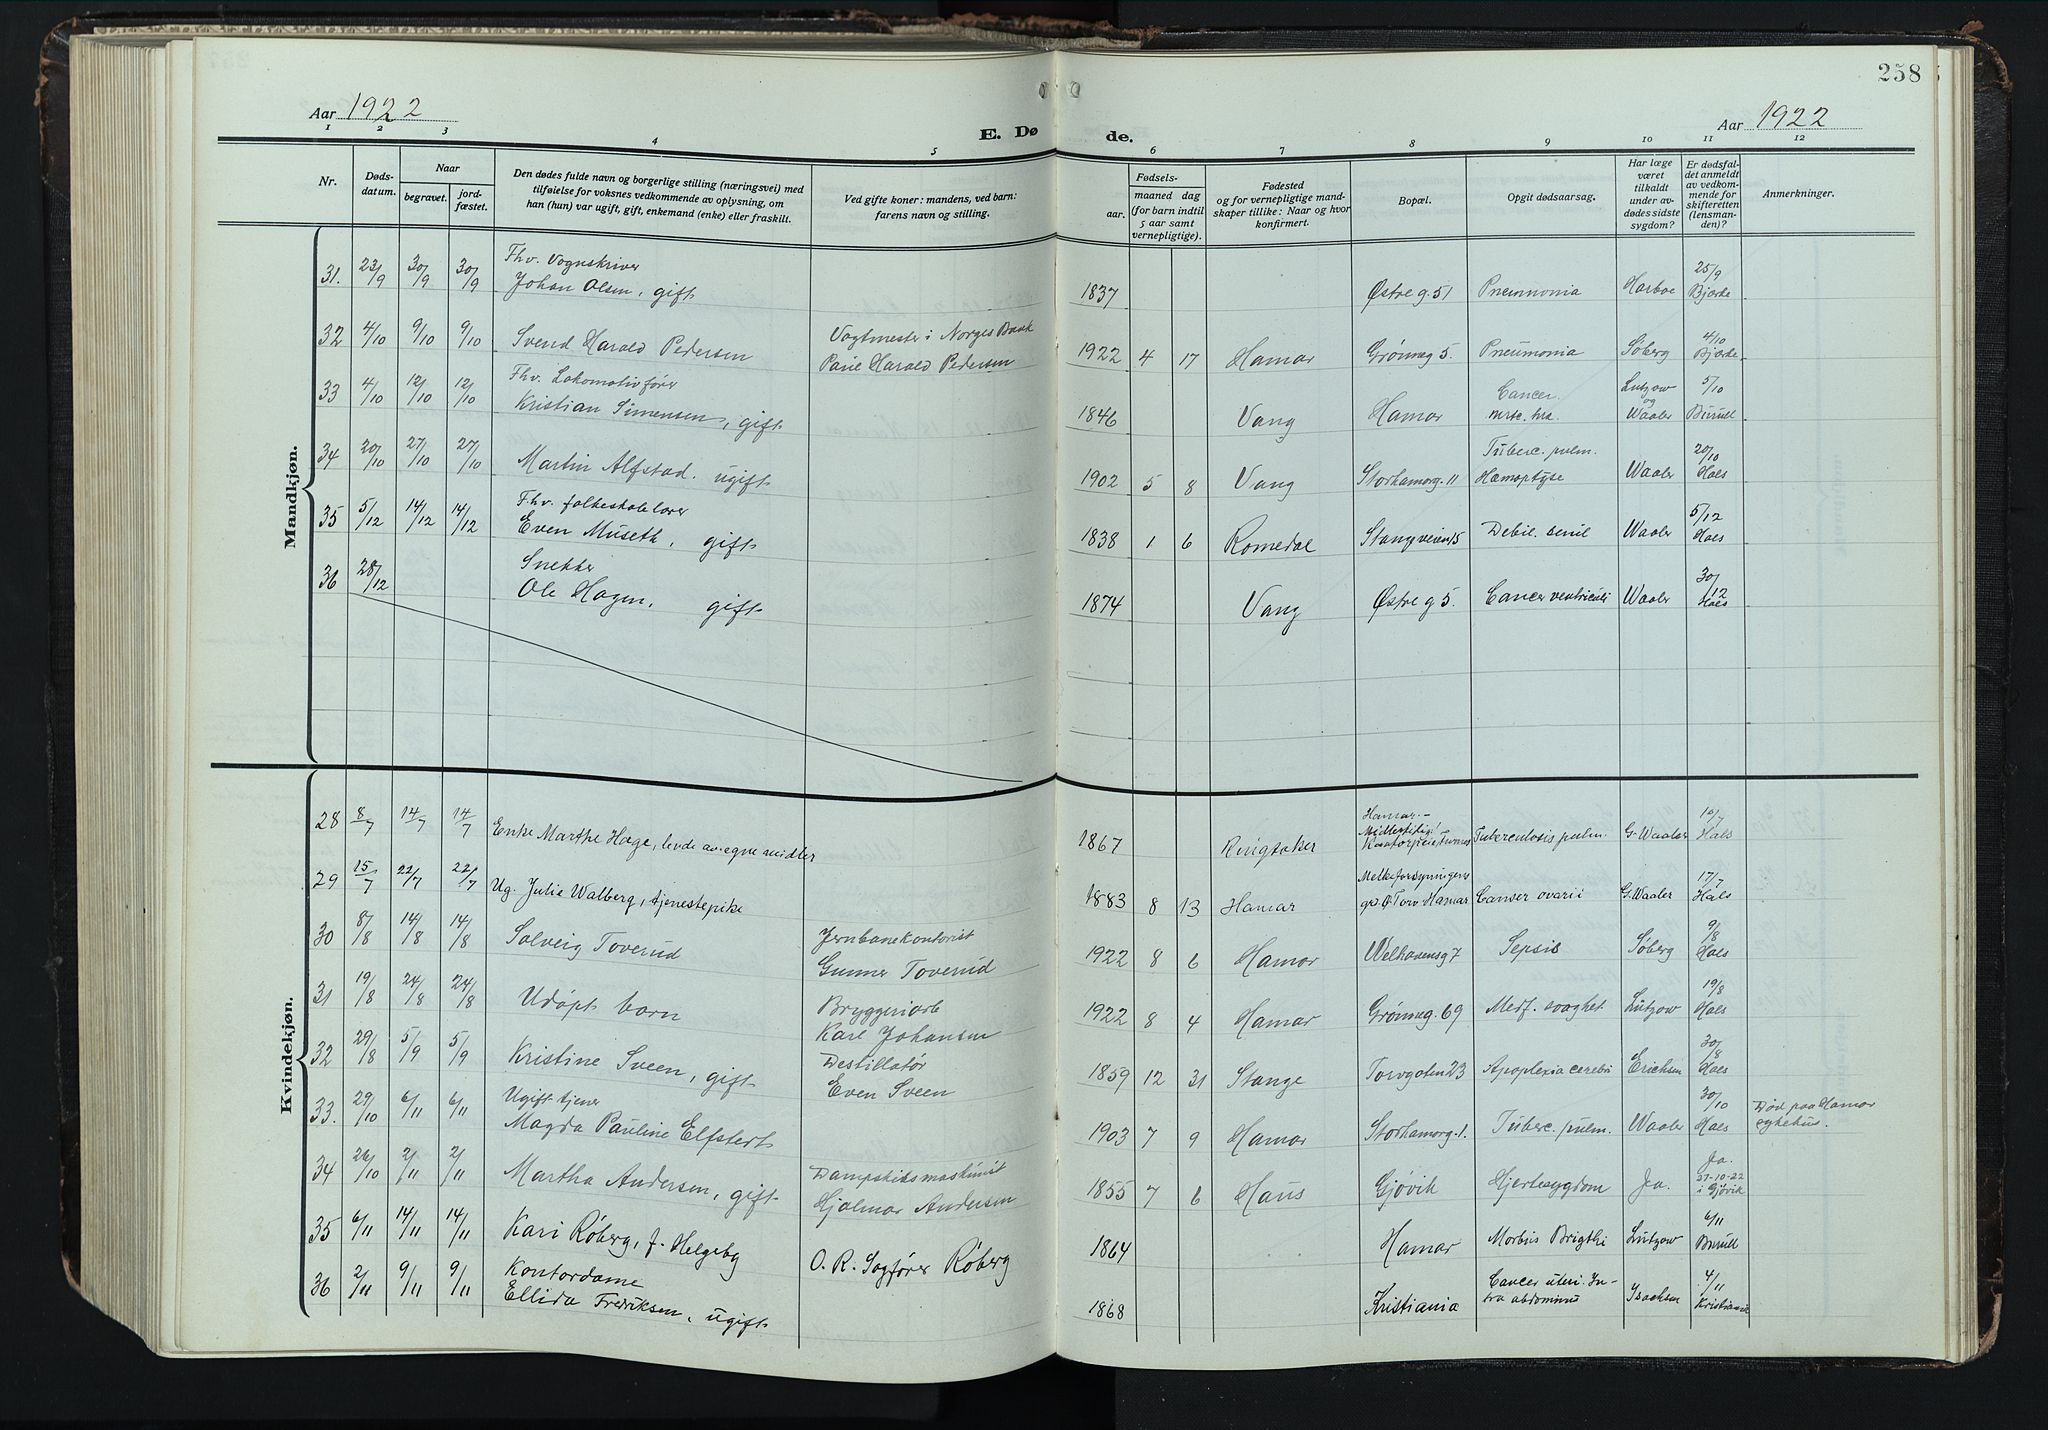 258
Aar 1922
E. Døde.
Aar 1922
1 2 3 4 5 6 7 8 9 10 11 12
Nr.
Døds-
datum.
Naar
begravet.
jord-
fæstet.
Den dødes fulde navn og borgerlige stilling (næringsvei) med
tilføielse for voksnes vedkommende av oplysning, om
han (hun) var ugift, gift, enkemand (enke) eller fraskilt.
Ved gifte koner: mandens, ved barn:
farens navn og stilling.
Fødsels-
aar.
maaned dag
(for barn indtil
5 aar samt
vernepligtige).
Fødested
og for vernepligtige mand-
skaper tillike: Naar og hvor
konfirmert.
Bopæl.
Opgit dødsaarsag.
Har læge
været
tilkaldt
under av-
dødes sidste
sygdom?
Er dødsfal-
det anmeldt
av vedkom-
mende for
skifteretten
(lensman-
den)?
Anmerkninger.
Mandkjøn.
31. 23/9 30/9 30/9 Fhv. Vognskriver
Johan Olsen, gift 1837 Østre g. 51 Pneumonia Harboe 25/9 Bjørke
32 4/10 9/10 9/10 Svend Harald Pedersen Vagtmester i Norges Bank
Harald Pedersen 1922 4 17 Hamar Grønneg 5. Pneumonia Søberg 4/10 Bjørke
33 4/10 12/10 12/10 Fhv. Lokomotivfører
Kristian Simensen, gift 1846 Vang Hamar Cancer Lutzow og Waaler 5/10
34 20/10 27/10 27/10 Martin Alfstad. ugift 1902 5 8 Vang Storhamarg. 11 Tuberc. pulm.
Hæmoptyse Waaler 20/10 Hals
35 5/12 14/12 14/12 Fhv. folkeskolelærer
Even Museth, gift 1838 1 6 Romedal Stangveien 15 Debil. senil Waaler 5/12 Hals
36 28/12 Snekker
Ole Hagen, gift 1874 Vang Østre g 5. Cancer ventriculi Waaler 30/12 Hals
Kvindekjøn.
28 8/7 14/7 14/7 Enke Marthe Hage, levde av egne midler 1867 Ringsaker Hamar.-
Midlertidig: Tuberculosis pulm. G. Waaler 10/7 Hals
29 15/7 22/7 22/7 Ug. Julie Walberg, tjenestepike 1883 8 13 Hamar Melkeforsyningen
Ø Torv Hamar Canser ovarii G. Waaler 17/7 Hals
30 8/8 14/8 14/8 Solveig Toverud Jernbanekontorist
Gunnar Toverud 1922 8 6 Hamar Welhavensg 7 Sepsis Søberg 9/8 Hals
31 19/8 24/8 24/8 Udøpt barn Bryggeriarb
Karl Johansen 1922 8 4 Hamar Grønneg. 69 Medf. svaghet Lutzow 19/8 Hals
32 29/8 5/9 5/9 Kristine Sveen, gift Destillatør
Even Sveen 1859 12 31 Stange Torvgaten 23 Apoplexia cerebri Erichsen 30/8 Hals
33. 29/10 6/11 6/11 Ugift tjener
Magda Pauline Elfstedt 1903 7 9 Hamar Storhamarg. 1. Tuberc. pulm. Waaler 30/10 Hals Død paa Hamar
sykehus.
34 26/10 2/11 2/11 Martha Andersen, gift Dampskibsmaskinist
Hjalmar Andersen 1855 7 6 Haus Gjøvik Hjertesygdom Ja. Ja.
27-10-22
i Gjøvik
35 6/11 14/11 14/11 Kari Røberg, f. Helgeby O. R. Sagfører Røberg 1864 Hamar Morbus Brigthi Lutzow 6/11
36 2/11 9/11 9/11 Kontordame
Ellida Fredriksen, ugift 1868 Kristiania Cancer uteri. In-
tra abdominus Isachsen 4/11 Kristiania